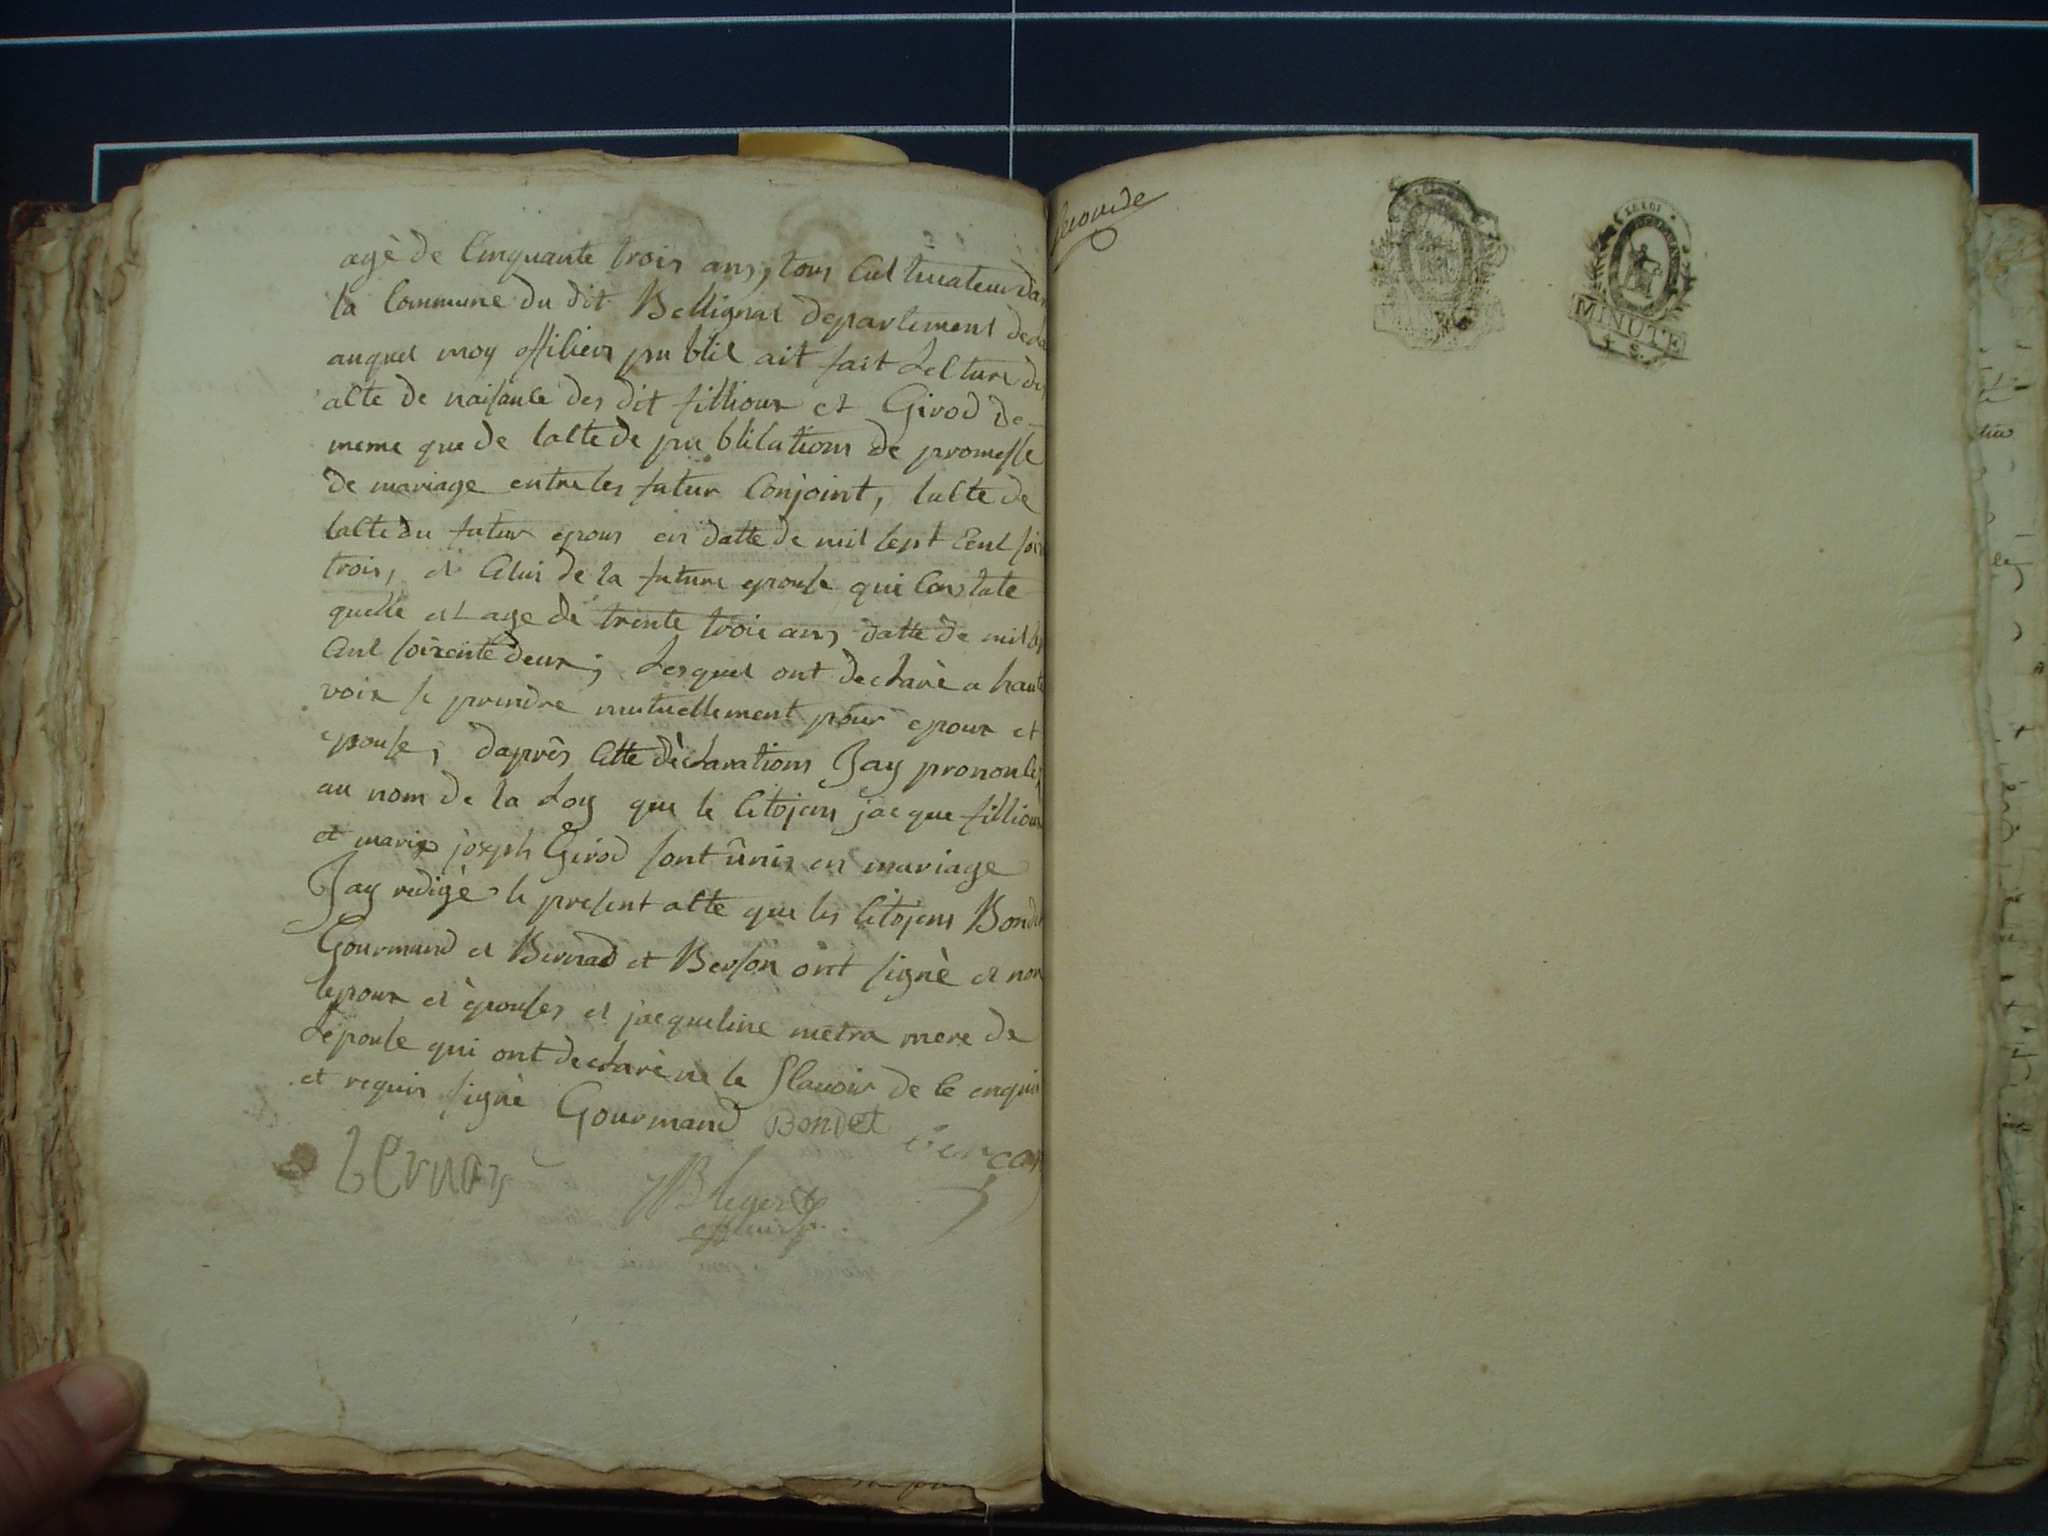 agè de Cinquante trois ans, tous Cultivateur dan
la Commune du dit Bellignat departement de
auquel moy officier public ait fait Lecture de
acte de naisance des dit fillioux et Girod de
meme que de lacte de publications de promesse
de mariage entre les futur Conjoint, lacte de
lacte du futur epoux en datte de mil sept Cent soi
trois, et Celui de la future epouse qui Constate
quelle est age de trente trois ans datte de mil
Cent soixente deux; Lesquel ont declarè a haute
voix se prendre mutuellement pour epoux et
epouse, daprês Cette dèclarations Jay prononcé
au nom de la Loy que le Citojens jacque filliou
et marie joseph Girod sont ûnis en mariage
Jay redigè le present acte que les Citojens Bondet
Gourmand et Bernad et Berson ont signè et non
lepoux et èpouses et jacqueline metra mere de
Lèpouse qui ont declarè ne le Scavoir de ce enquis
et requis signè Gourmand Bondet
bernas
officier
Seconde
MINUTE